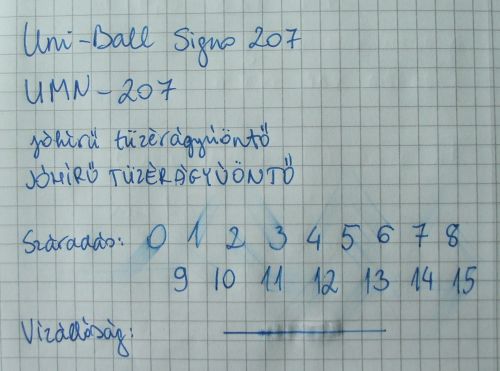 Uni-Ball Signo 207
UMN-207
jóhírű tüzérágyúöntő
JÓHÍRŰ TÜZÉRÁGYÚÖNTŐ
Száradás: 0 1 2 3 4 5 6 7 8
9 10 11 12 13 14 15
Vízállóság: